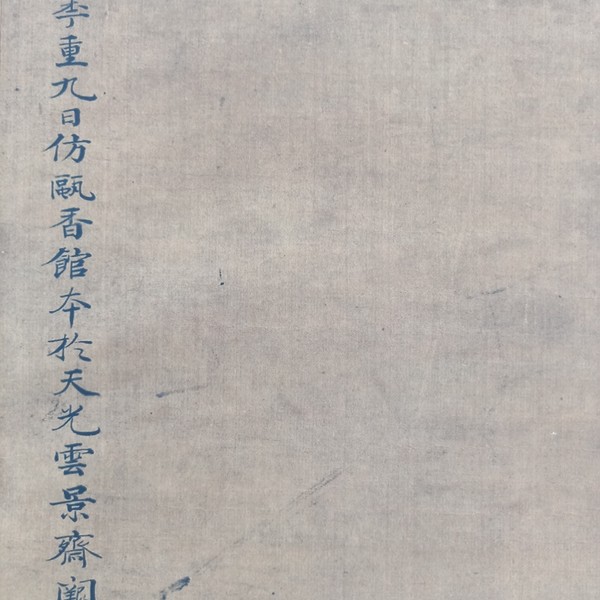 季重九日仿甌香館本於天光雲景齋